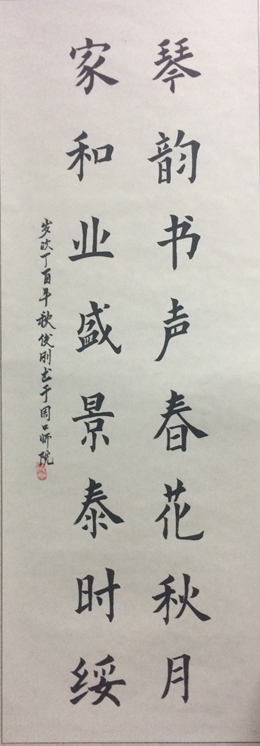 琴韵书声春花秋月
家和业盛景泰时绥
岁次丁酉年秋俊刚书于周口师院